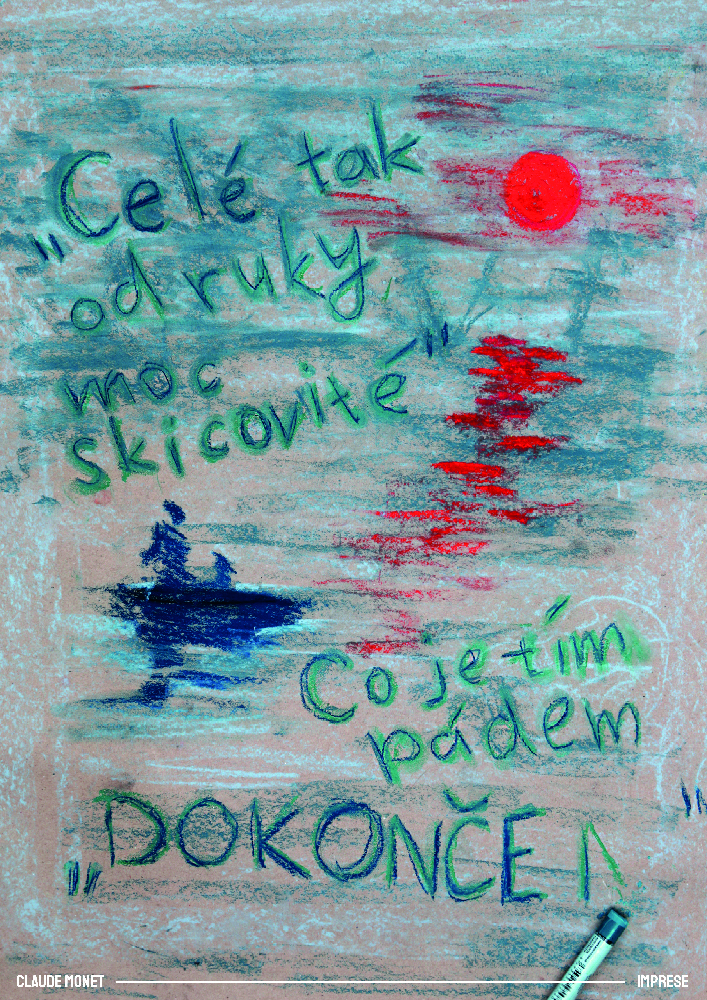 „Celé tak
od ruky,
moc
skicovité“
Co je tím
pádem
„DOKONČEN
CLAUDE MONET
IMPRESE